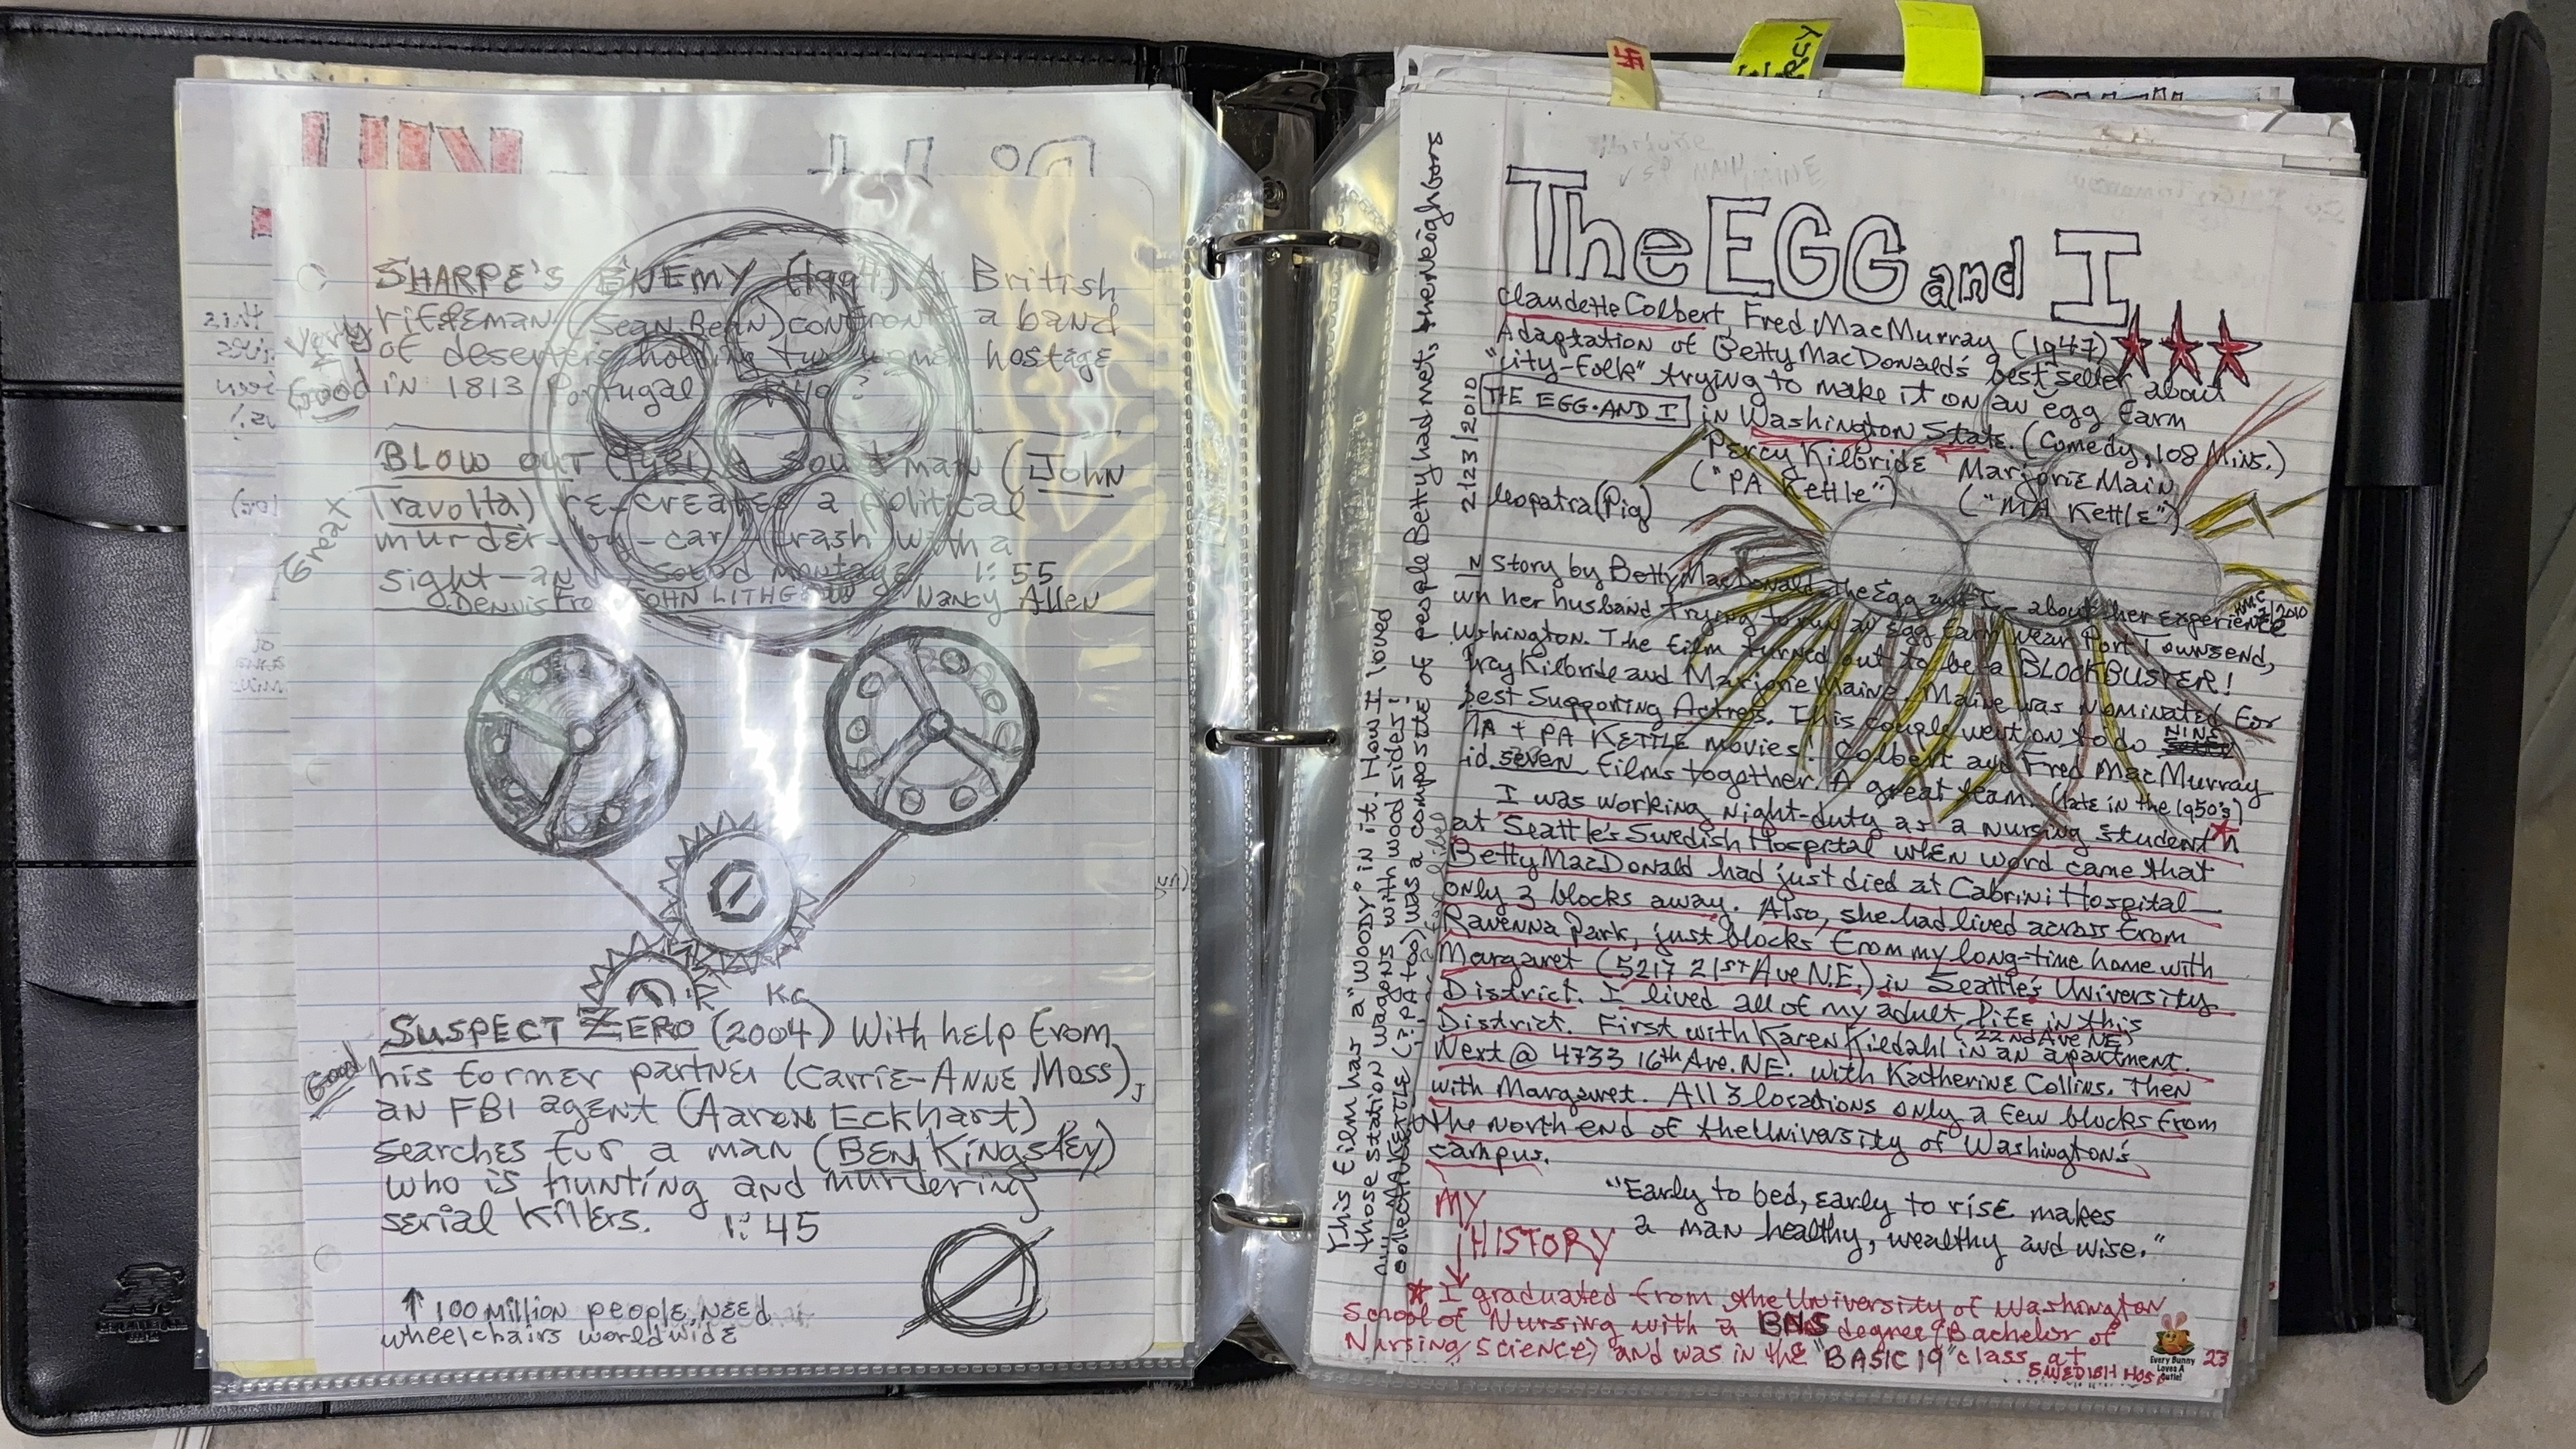 SHARPE'S ENEMY (1994) A British
rifleman (Sean Bean) confronts a band
of deserters holding two women hostage
in 1813 Portugal 1:40 ?
Very
Good
BLOW OUT (1981) A sound man (John
Travolta) re-creates a political
murder-by-car-crash with a
sight-and sound montage. 1:55
Dennis Franz JOHN LITHGOW Nancy Allen
Great
SUSPECT ZERO (2004) With help from
his former partner (Carrie-ANNE Moss),
an FBI agent (Aaron Eckhart)
searches for a man (BEN Kingsley)
who is hunting and murdering
serial killers. 1:45
Good
↑ 100 Million people need
wheelchairs worldwide
The EGG and I
Claudette Colbert, Fred MacMurray (1947) ★★★
Adaptation of Betty MacDonald's best seller about
"city-folk" trying to make it on an egg farm
THE EGG AND I in Washington State. (Comedy, 108 Mins.)
Percy Kilbride Marjorie Main
("PA Kettle") ("MA Kettle")
2/23/2010
Cleopatra (Pig)
story by Betty MacDonald The Egg and I - about her experience
her husband trying to run an egg farm near Port Townsend,
The film turned out to be a BLOCKBUSTER!
Kilbride and Marjorie Maine. Maine was nominated for
best Supporting Actress. This couple went on to do NINE
MA + PA KETTLE movies! Colbert and Fred MacMurray
seven films together. A great team. (late in the 1950's)
I was working night-duty as a nursing student
at Seattle's Swedish Hospital when word came that
Betty MacDonald had just died at Cabrini Hospital
only 3 blocks away. Also, she had lived across from
Ravenna Park, just blocks from my long-time home with
Margaret (5217 21st Ave N.E.) in Seattle's University
District. I lived all of my adult life in this
District. First with Karen Kildahl in an apartment. (22nd Ave NE)
Next @ 4733 16th Ave. NE. with Katherine Collins. Then
with Margaret. All 3 locations only a few blocks from
the north end of the University of Washington's
campus.
MY
HISTORY
"Early to bed, early to rise makes
a man healthy, wealthy and wise."
★ I graduated from the University of Washington
School of Nursing with a BNS degree (Bachelor of
Nursing Science) and was in the "BASIC 19" class at
SWEDISH HOSP
Every Bunny
Loves A
23
This film has a "WOODY" in it. How I loved
those station wagons with wood sides!
was a composite of people Betty had met, her neighbors